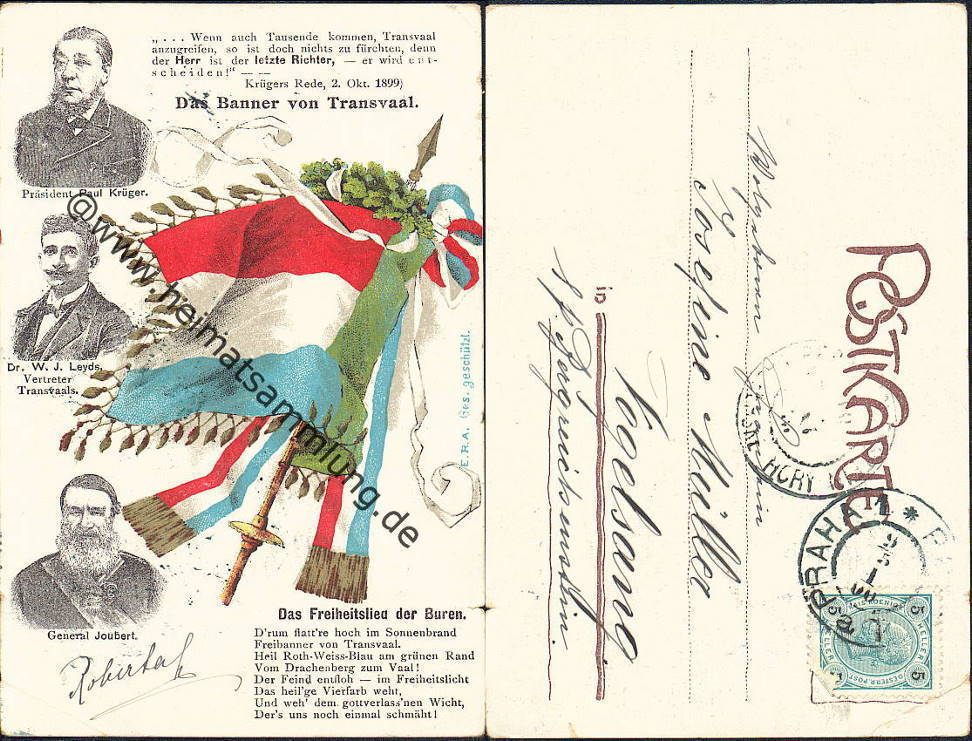 „. . . Wenn auch Tausende kommen, Transvaal
anzugreifen, so ist doch nichts zu fürchten, denn
der Herr ist der letzte Richter, — er wird ent-
scheiden!“ — —
Krügers Rede, 2. Okt. 1899)
Das Banner von Transvaal.
Präsident Paul Krüger.
Dr. W. J. Leyds,
Vertreter
Transvaals.
General Joubert.
E.R.A. Ges. geschützt.
@www.heimatsammlung.de
Das Freiheitslied der Buren.
D'rum flatt're hoch im Sonnenbrand
Freibanner von Transvaal.
Heil Roth-Weiss-Blau am grünen Rand
Vom Drachenberg zum Vaal!
Der Feind entfloh — im Freiheitslicht
Das heil'ge Vierfarb weht,
Und weh' dem gottverlass'nen Wicht,
Der's uns noch einmal schmäht!
POSTKARTE
Wohlgeboren
Josefine Müller
in Vogelsang
HORY
PRAHA
5 HELLER 5
5 5